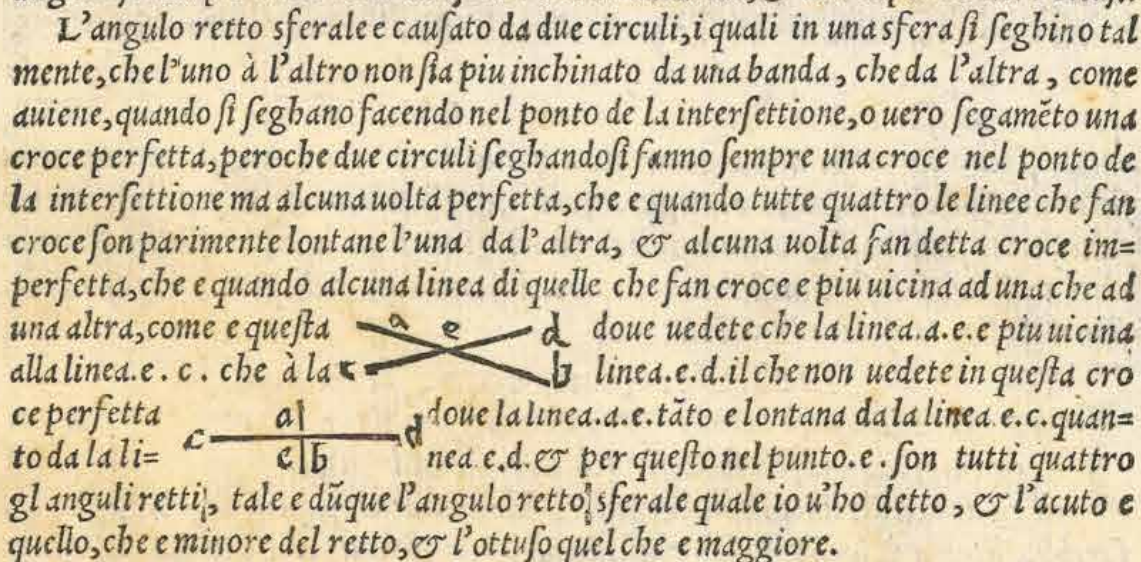 L'angulo retto sferale e cauſato da due circuli, i quali in una sfera ſi ſeghino tal
mente, che l'uno à l'altro non ſia piu inchinato da una banda, che da l'altra, come
auiene, quando ſi ſeghano facendo nel ponto de la interſettione, o uero ſegamẽto una
croce perfetta, peroche due circuli ſeghandoſi fanno ſempre una croce nel ponto de
la interſettione ma alcuna uolta perfetta, che e quando tutte quattro le linee che fan
croce ſon parimente lontane l'una da l'altra, & alcuna uolta fan detta croce im=
perfetta, che e quando alcuna linea di quelle che fan croce e piu uicina ad una che ad
una altra, come e queſta a e d doue uedete che la linea.a.e.e piu uicina
alla linea.e.c. che à la c b linea.e.d.il che non uedete in queſta cro
ce perfetta a doue la linea.a.e.tãto e lontana da la linea e.c.quan=
to da la li= c e b d nea e.d.& per queſto nel punto.e.ſon tutti quattro
gl anguli retti, tale e dũque l'angulo retto sferale quale io u'ho detto, & l'acuto e
quello, che e minore del retto, & l'ottuſo quel che e maggiore.